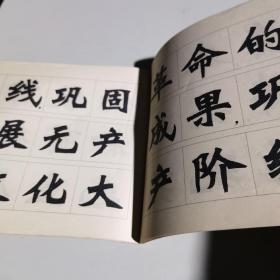 线巩固
展无产
化大
革命的
成果,巩
产阶级